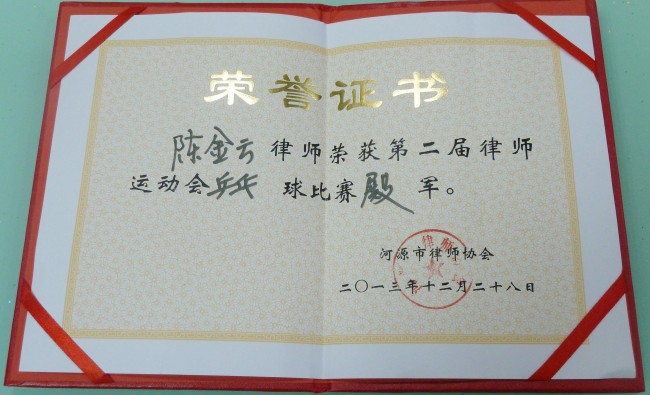 荣誉证书
陈金云律师荣获第二届律师
运动会乒乓 球比赛殿 军。
河源市律师协会
二〇一三年十二月二十八日
律师